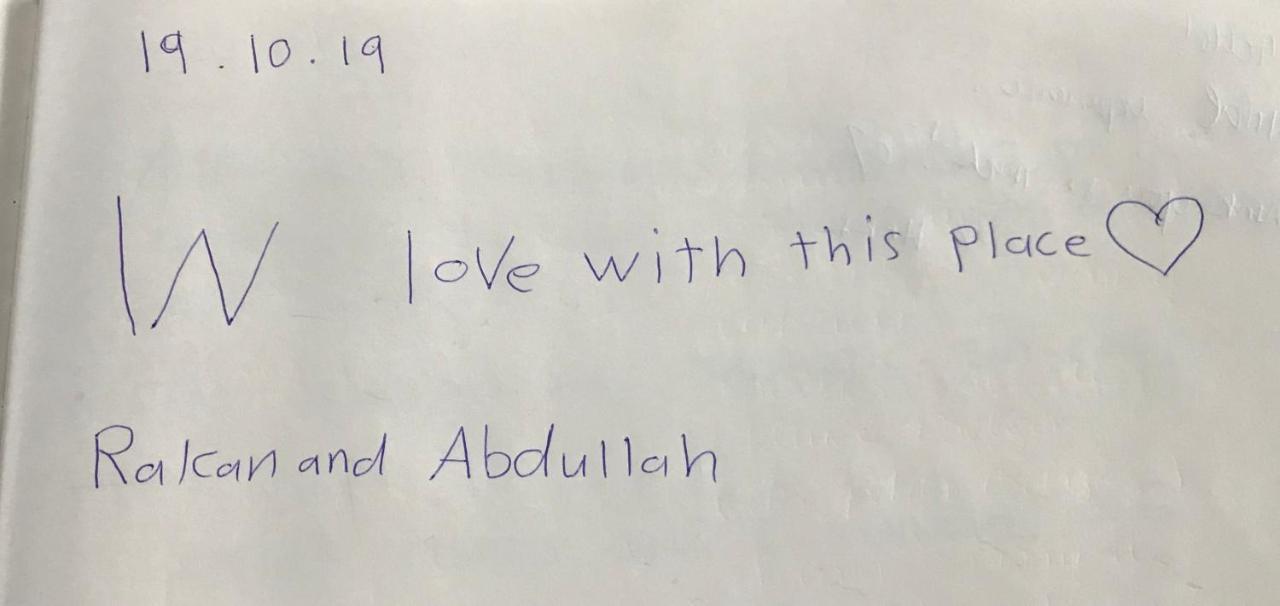 19.10.19
IN love with this place ♡
Rakan and Abdullah